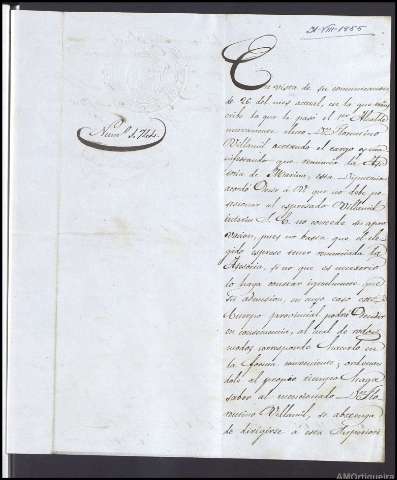 31-VIII-1855
En vista de su comunicacion
de 26 del mes actual, en la que trans
cribe la que le pasó el Alcalde
nuevamente electo Dn Florentino
Villamil aceptando el cargo y ma
nifestando que renunció la Ase
soria de Marina, esta Diputacion
acordó Decir á V. que no debe po
sesionar al espresado Villamil
S. E. no conceda su apro
vacion, pues no basta que el ele
gido esprese tener renunciada la
Asesoria, si no que es necesario
lo haga constar igualmente que
su admision, en cuyo caso este
Cuerpo provincial podrá Decidir
en consecuencia, al cual de todos
modos corresponde hacerlo en
la forma conveniente; ordenan
dole al propio tiempo haga
saber al mencionado Dn Flo
rentino Villamil, se abstenga
de dirigirse á esta Superiori
AMOrtigueira